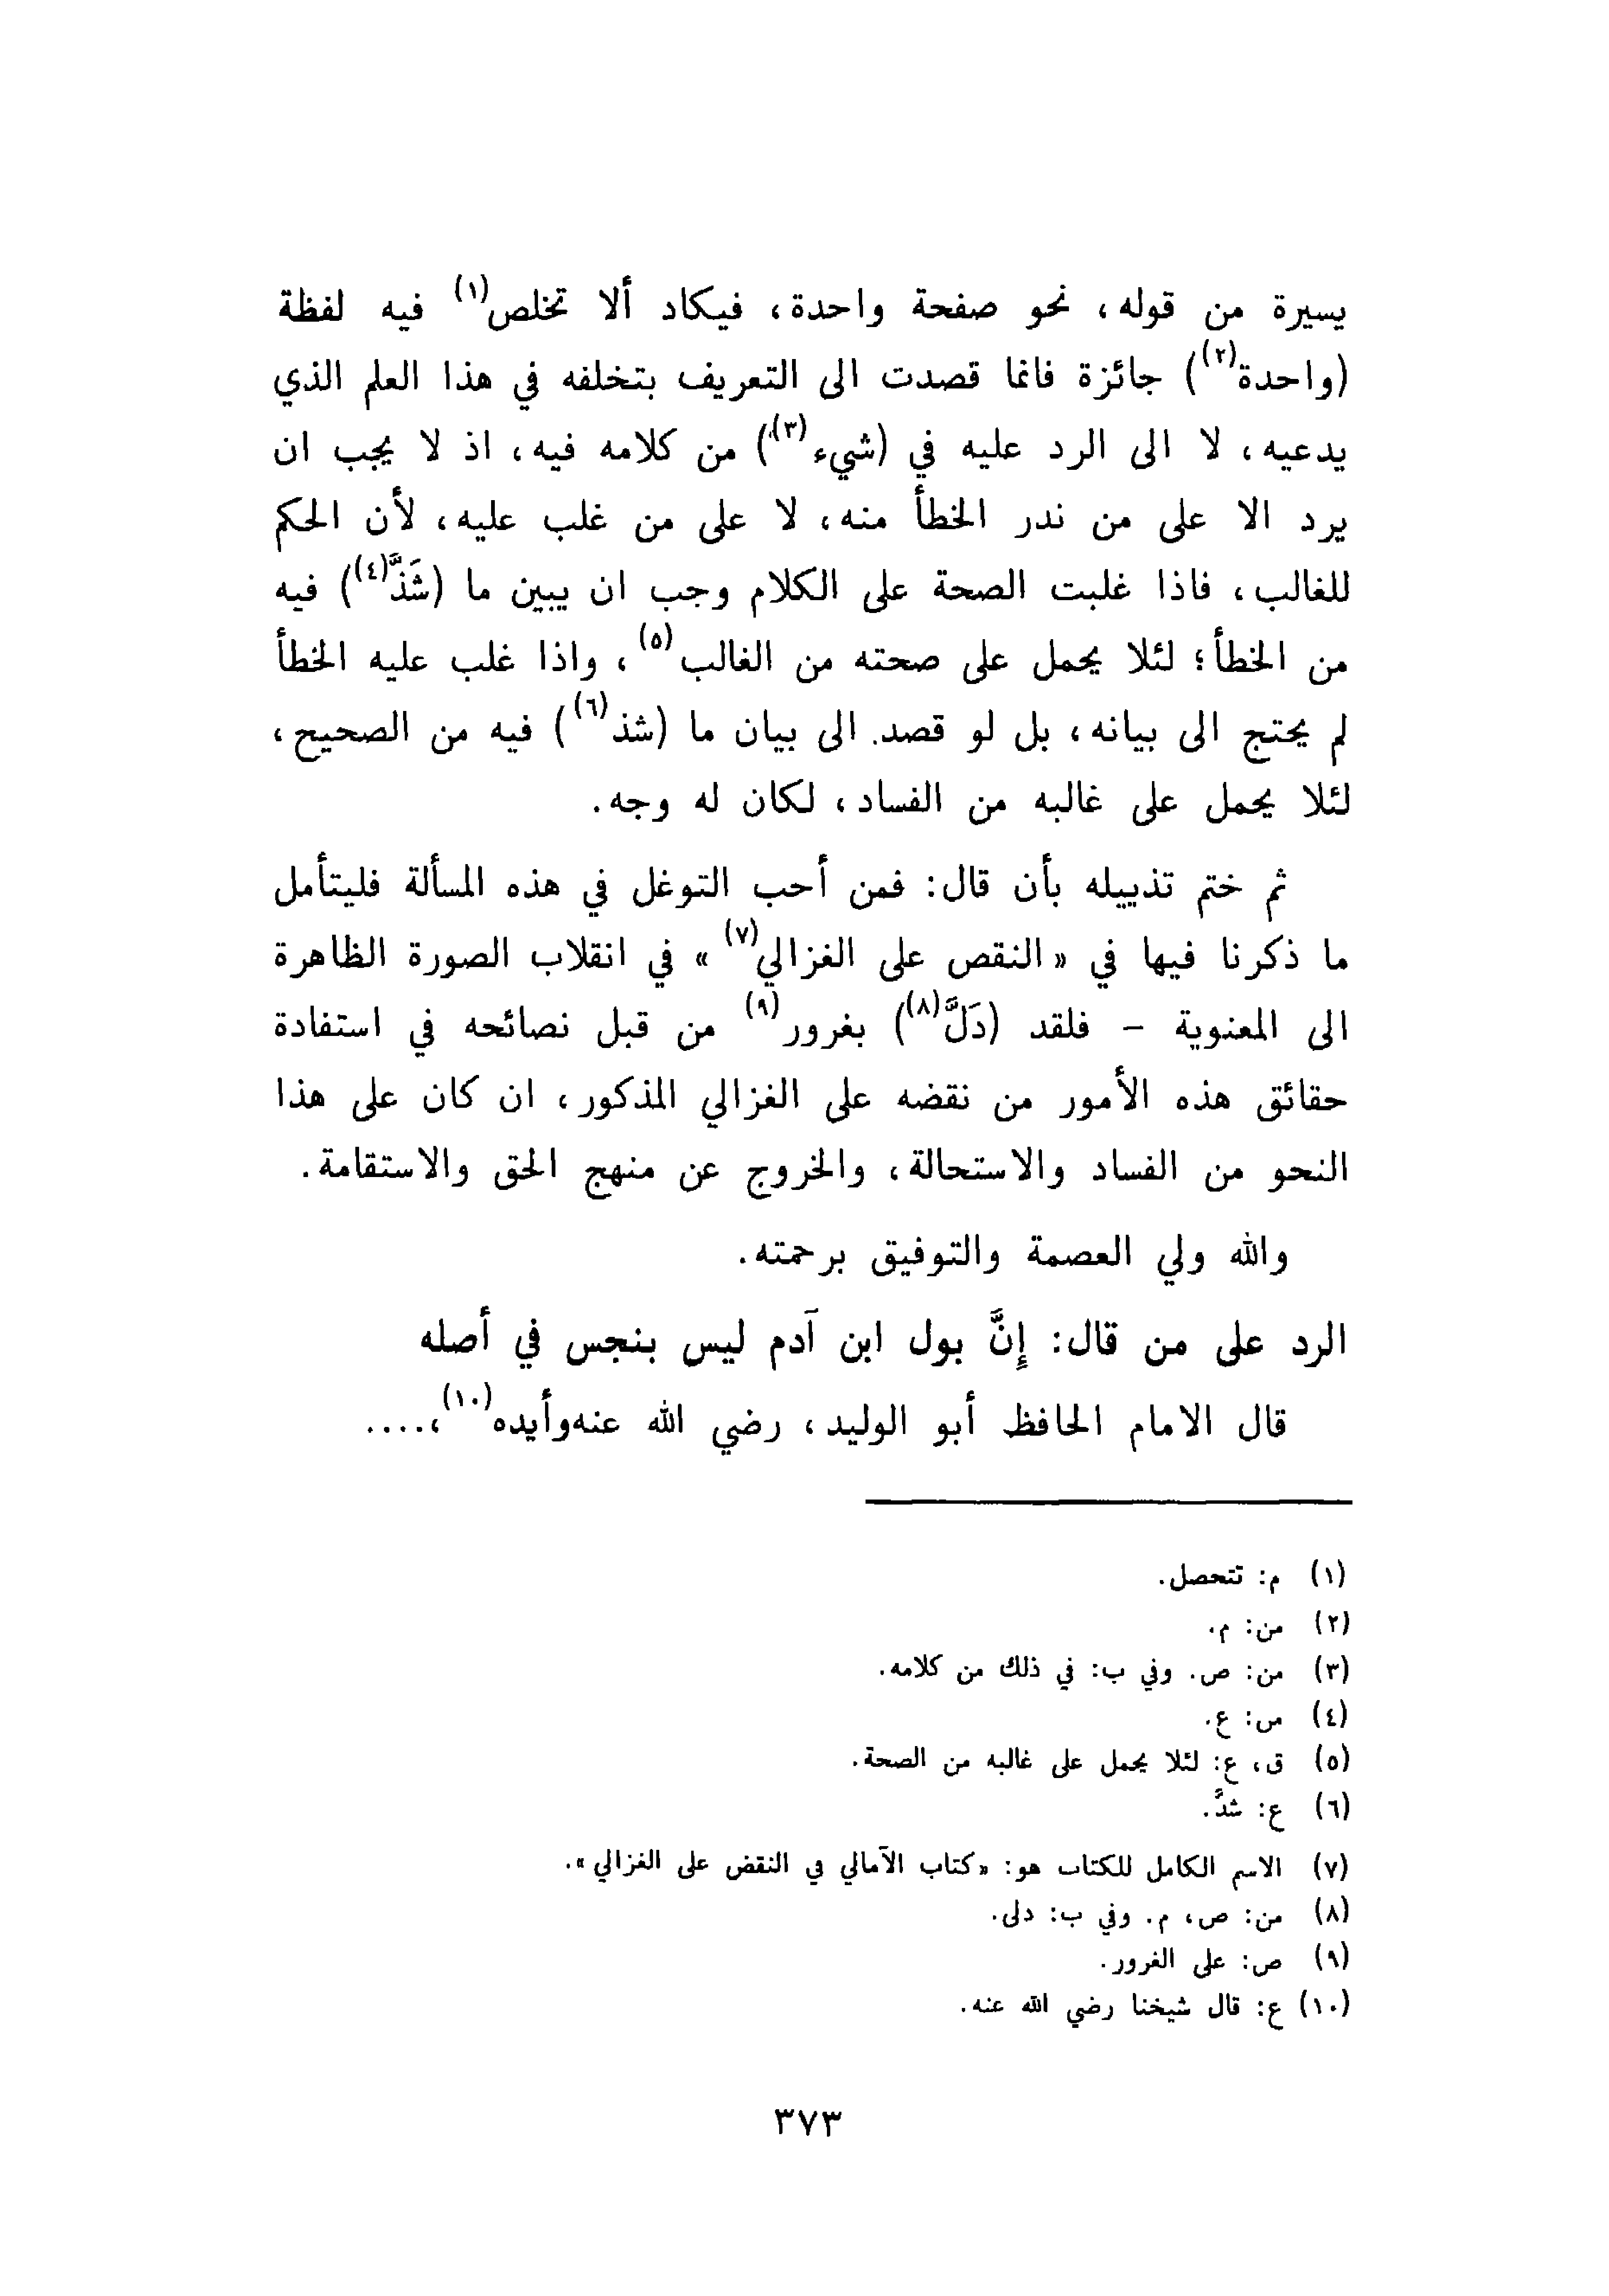 يسيرة من قوله، نحو صفحة واحدة، فيكاد ألا تخلص(١) فيه لفظة
(واحدة(٢)) جائزة فانما قصدت الى التعريف بتخلفه في هذا العلم الذي
يدعيه، لا الى الرد عليه في (شيء(٣)) من كلامه فيه، اذ لا يجب ان
يرد الا على من ندر الخطأ منه، لا على من غلب عليه، لأن الحكم
للغالب، فاذا غلبت الصحة على الكلام وجب ان يبين ما (شَذَّ(٤)) فيه
من الخطأ؛ لئلا يحمل على صحته من الغالب(٥)، واذا غلب عليه الخطأ
لم يحتج الى بيانه، بل لو قصد. الى بيان ما (شذ(٦)) فيه من الصحيح،
لئلا يحمل على غالبه من الفساد، لكان له وجه.
ثم ختم تذييله بأن قال: فمن أحب التوغل في هذه المسألة فليتأمل
ما ذكرنا فيها في «النقص على الغزالي(٧)» في انقلاب الصورة الظاهرة
الى المعنوية - فلقد (دَلَّ(٨)) بغرور(٩) من قبل نصائحه في استفادة
حقائق هذه الأمور من نقضه على الغزالي المذكور، ان كان على هذا
النحو من الفساد والاستحالة، والخروج عن منهج الحق والاستقامة.
والله ولي العصمة والتوفيق برحمته.
الرد على من قال: إِنَّ بول ابن آدم ليس بنجس في أصله
قال الامام الحافظ أبو الوليد، رضي الله عنه وأيده(١٠)،....
(١) م: تتحصل.
(٢) من: م.
(٣) من: ص. وفي ب: في ذلك من كلامه.
(٤) من: ع.
(٥) ق، ع: لئلا يحمل على غالبه من الصحة.
(٦) ع: شدَّ.
(٧) الاسم الكامل للكتاب هو: «كتاب الآمالي في النقض على الغزالي».
(٨) من: ص، م. وفي ب: دلى.
(٩) ص: على الغرور.
(١٠) ع: قال شيخنا رضي الله عنه.
٣٧٣